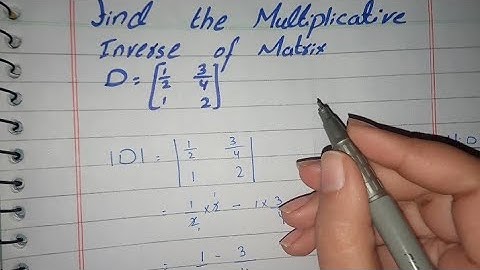 Find the Multiplicative
Inverse of Matrix
D = [1/2 3/4
1 2]
|D| = |1/2 3/4
1 2|
= 1/2 × 2 - 1 × 3
= 1 - 3